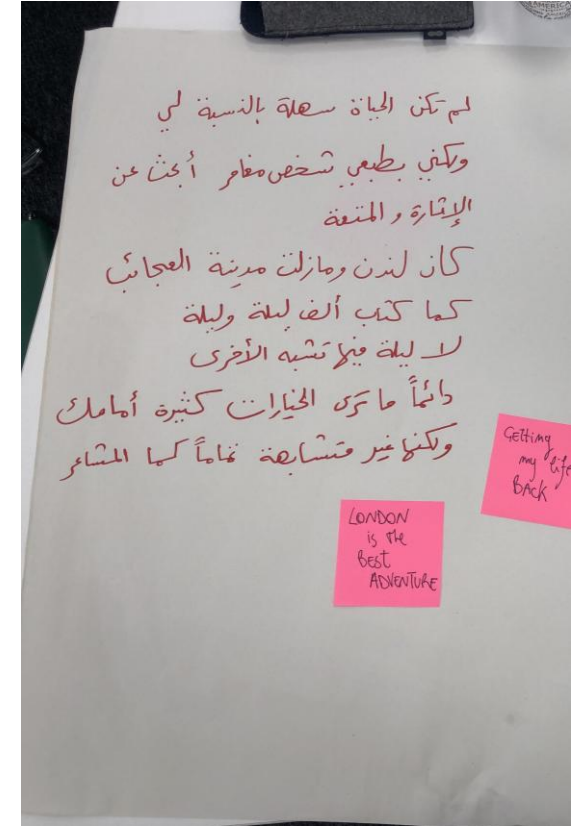 لم تكن الحياة سهلة بالنسبة لي
ولكني بطبعي شخص مغامر أبحث عن
الإثارة و المتعة
كان لندن ومازلت مدينة العجائب
كما كتب ألف ليلة وليلة
لا ليلة فيها تشبه الأخرى
دائماً ما ترى الخيارات كثيرة أمامك
ولكنها غير متشابهة تماماً كما المشاعر
GETTING
my life
BACK
LONDON
is the
BEST
ADVENTURE
AMERICA